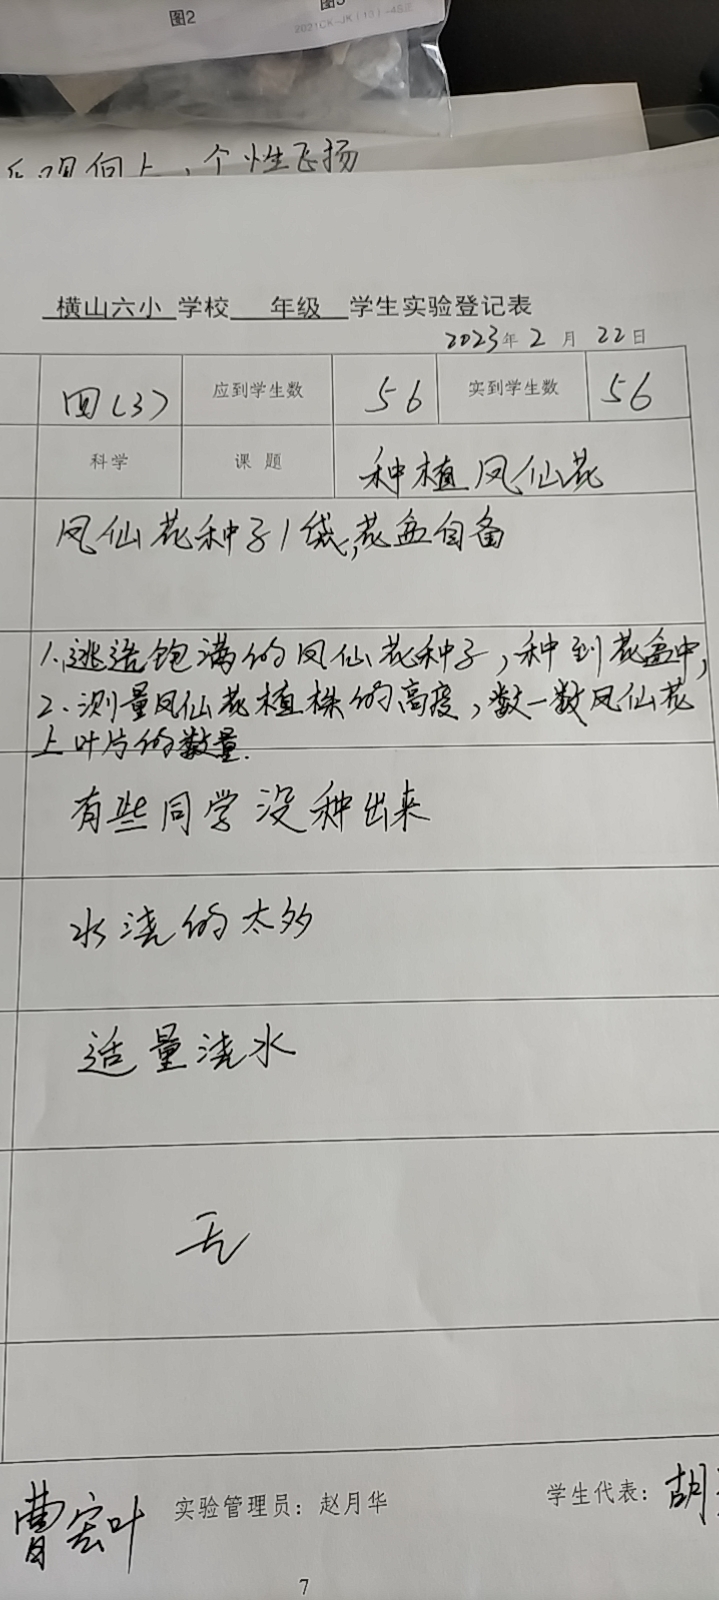 图2
2021CK-JK(13)-4S
向上，个性飞扬
横山六小 学校 年级 学生实验登记表
2023年2月22日
四(3) 应到学生数 56 实到学生数 56
科学 课题 种植凤仙花
凤仙花种子1袋,花盆自备
1.挑选饱满的凤仙花种子,种到花盆中,
2.测量凤仙花植株的高度,数一数凤仙花
上叶片的数量.
有些同学没种出来
水浇的太多
适量浇水
无
曹宏叶 实验管理员：赵月华 学生代表：胡
7